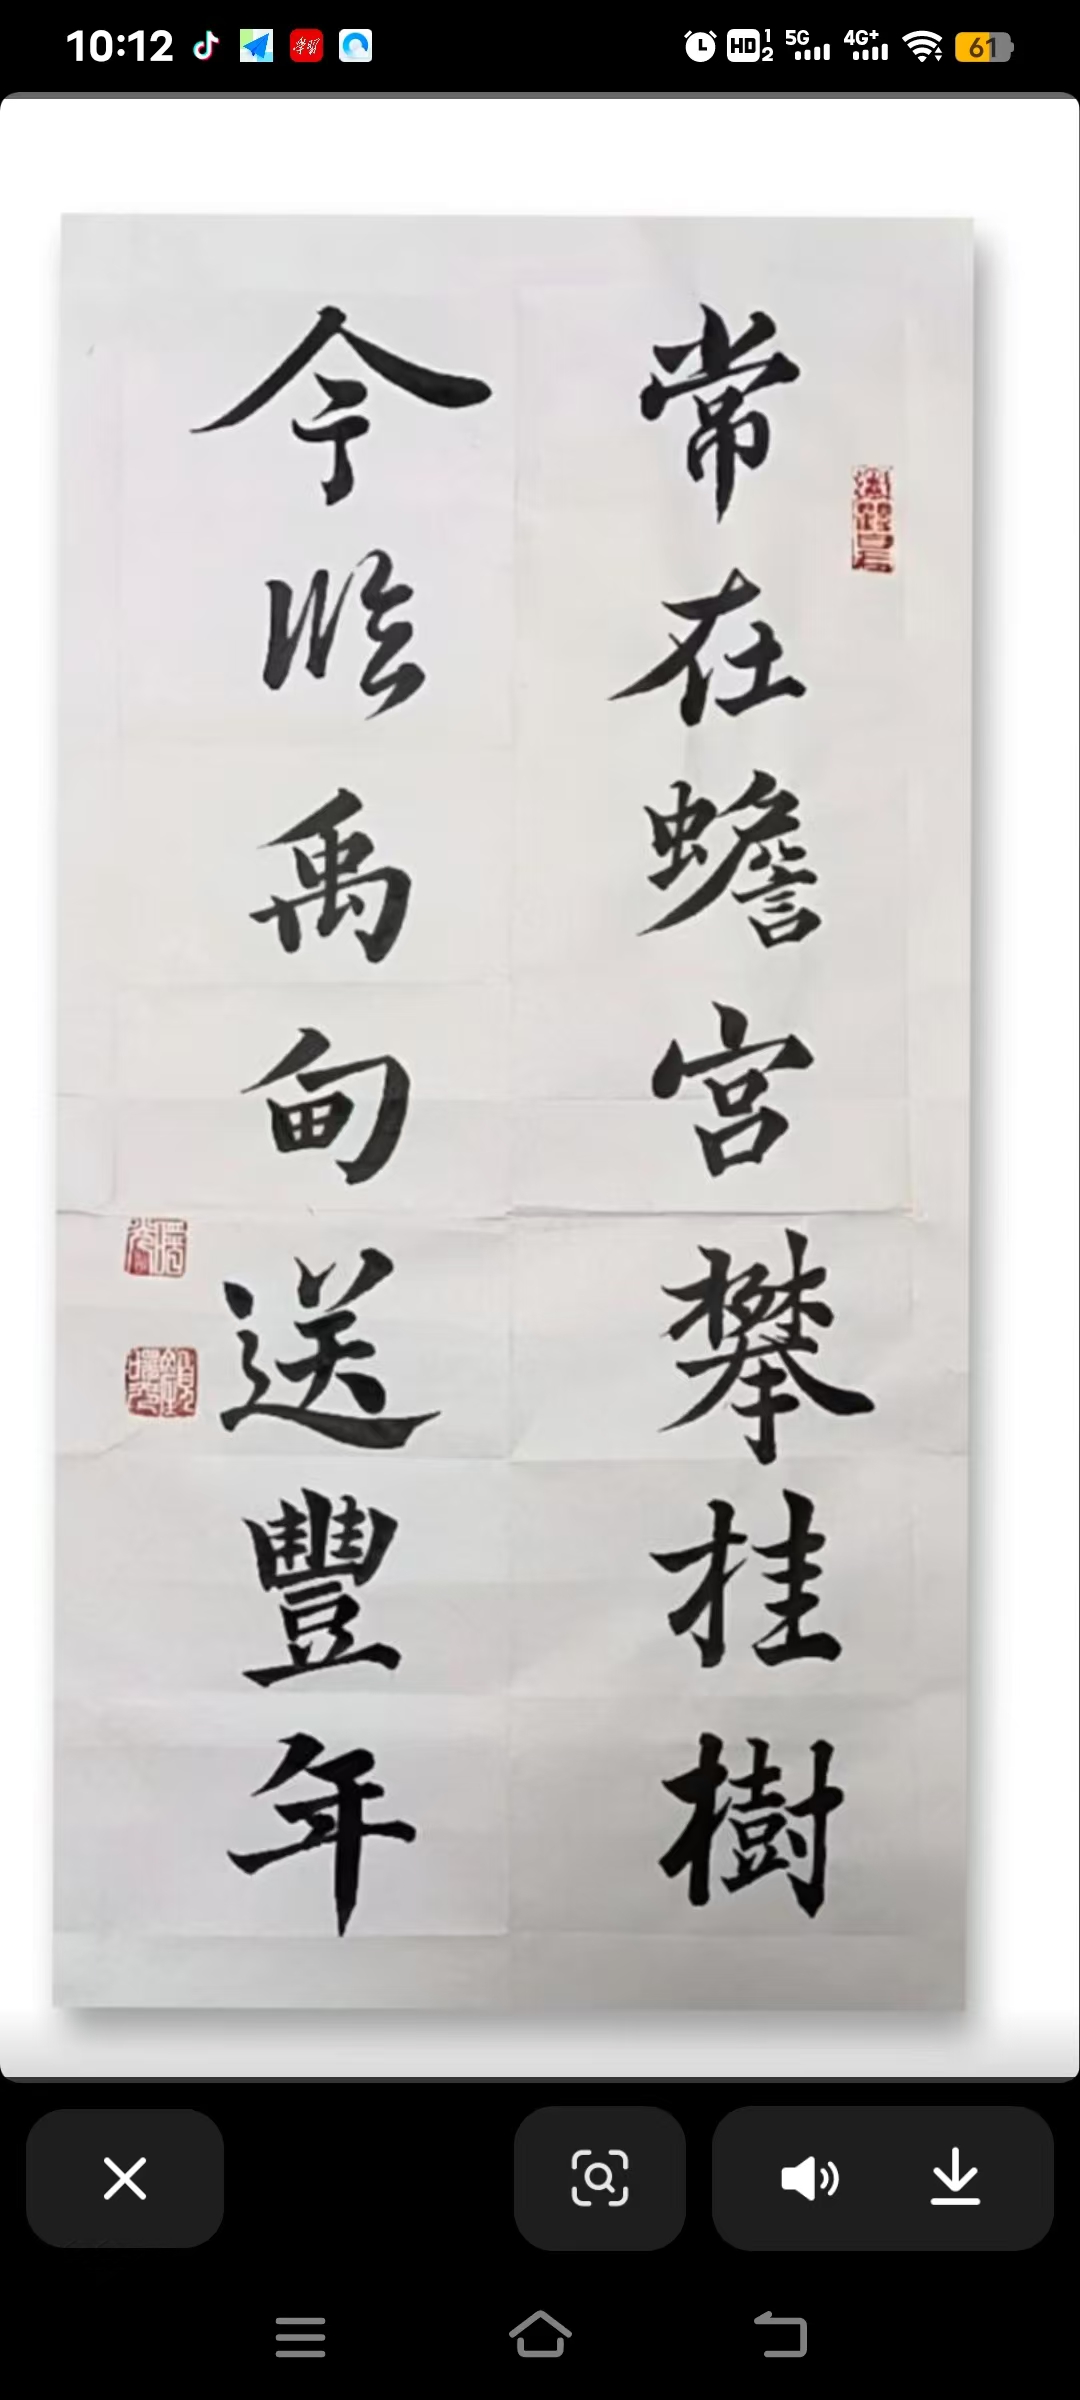 10:12
HD 1 2 5G 4G+ 61
常在蟾宫攀桂樹
今臨禹甸送豐年